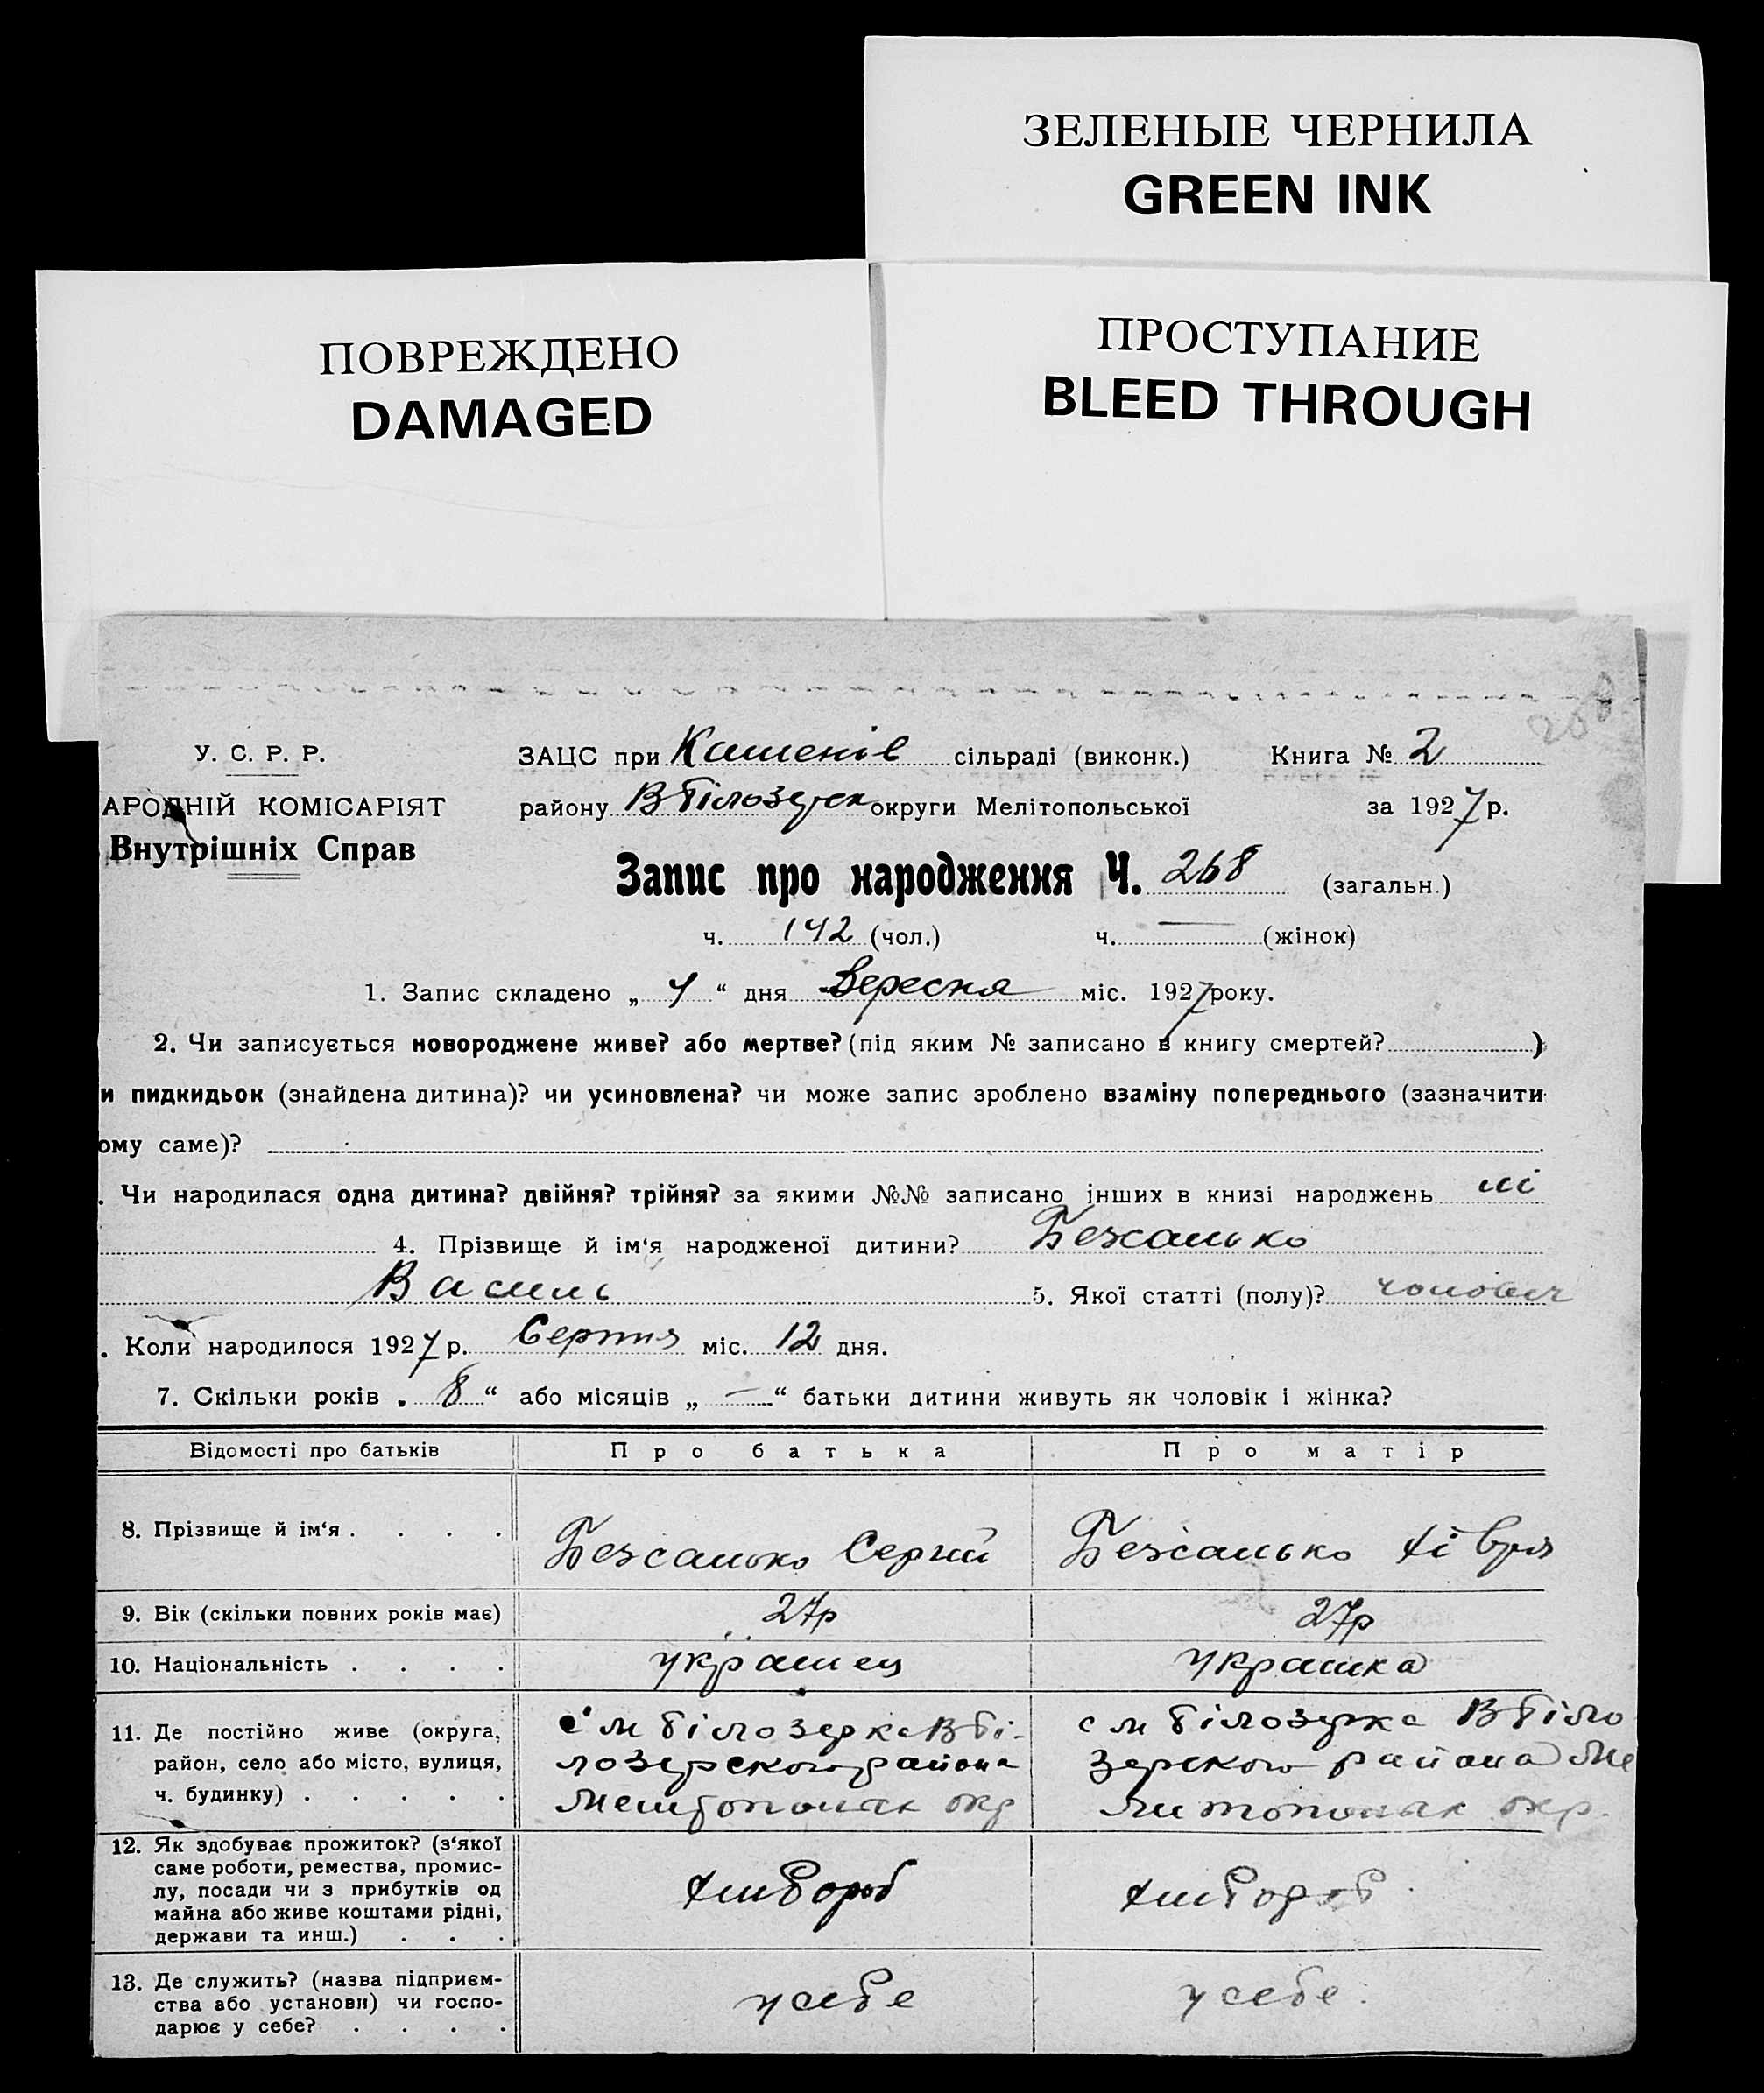 ЗЕЛЕНЫЕ ЧЕРНИЛА
GREEN INK
ПОВРЕЖДЕНО
DAMAGED
ПРОСТУПАНИЕ
BLEED THROUGH
У. С. Р. Р.
АРОДНІЙ КОМІСАРІЯТ
Внутрішніх Справ
ЗАЦС при Каменів сільраді (виконк.) Книга № 2
району В Білозерск округи Мелітопольської за 1927 р.
Запис про народження Ч. 268 (загальн.)
ч. 142 (чол.) ч. — (жінок)
1. Запис складено „ 4 “ дня Вересня міс. 1927 року.
2. Чи записується новороджене живе? або мертве? (під яким № записано в книгу смертей? )
и пидкидьок (знайдена дитина)? чи усиновлена? чи може запис зроблено взаміну попереднього (зазначити
ому саме)?
. Чи народилася одна дитина? двійня? трійня? за якими №№ записано інших в книзі народжень ні
4. Прізвище й ім‘я народженої дитини?
Василь 5. Якої статті (полу)? чоловіч
. Коли народилося 1927 р. Серпня міс. 12 дня.
7. Скільки років „ 8 “ або місяців „ — “ батьки дитини живуть як чоловік і жінка?
Відомості про батьків Про батька Про матір
8. Прізвище й ім‘я . . . . Сергій
9. Вік (скільки повних років має) 27р 27р
10. Національність . . . . українец українка
11. Де постійно живе (округа, район, село або місто, вулиця, ч. будинку) . . . . .
с м Білозерка В Бі-
лозерского района
Мелітопольск окр
с м Білозерка В Біло
зерского района Ме
литопольск окр.
12. Як здобуває прожиток? (з‘якої
саме роботи, ремества, промис-
лу, посади чи з прибутків од
майна або живе коштами рідні,
держави та инш.) . . .
хлибороб хлибороб
13. Де служить? (назва підприєм-
ства або установи) чи госпо-
дарює у себе? . . . .
у себе у себе.